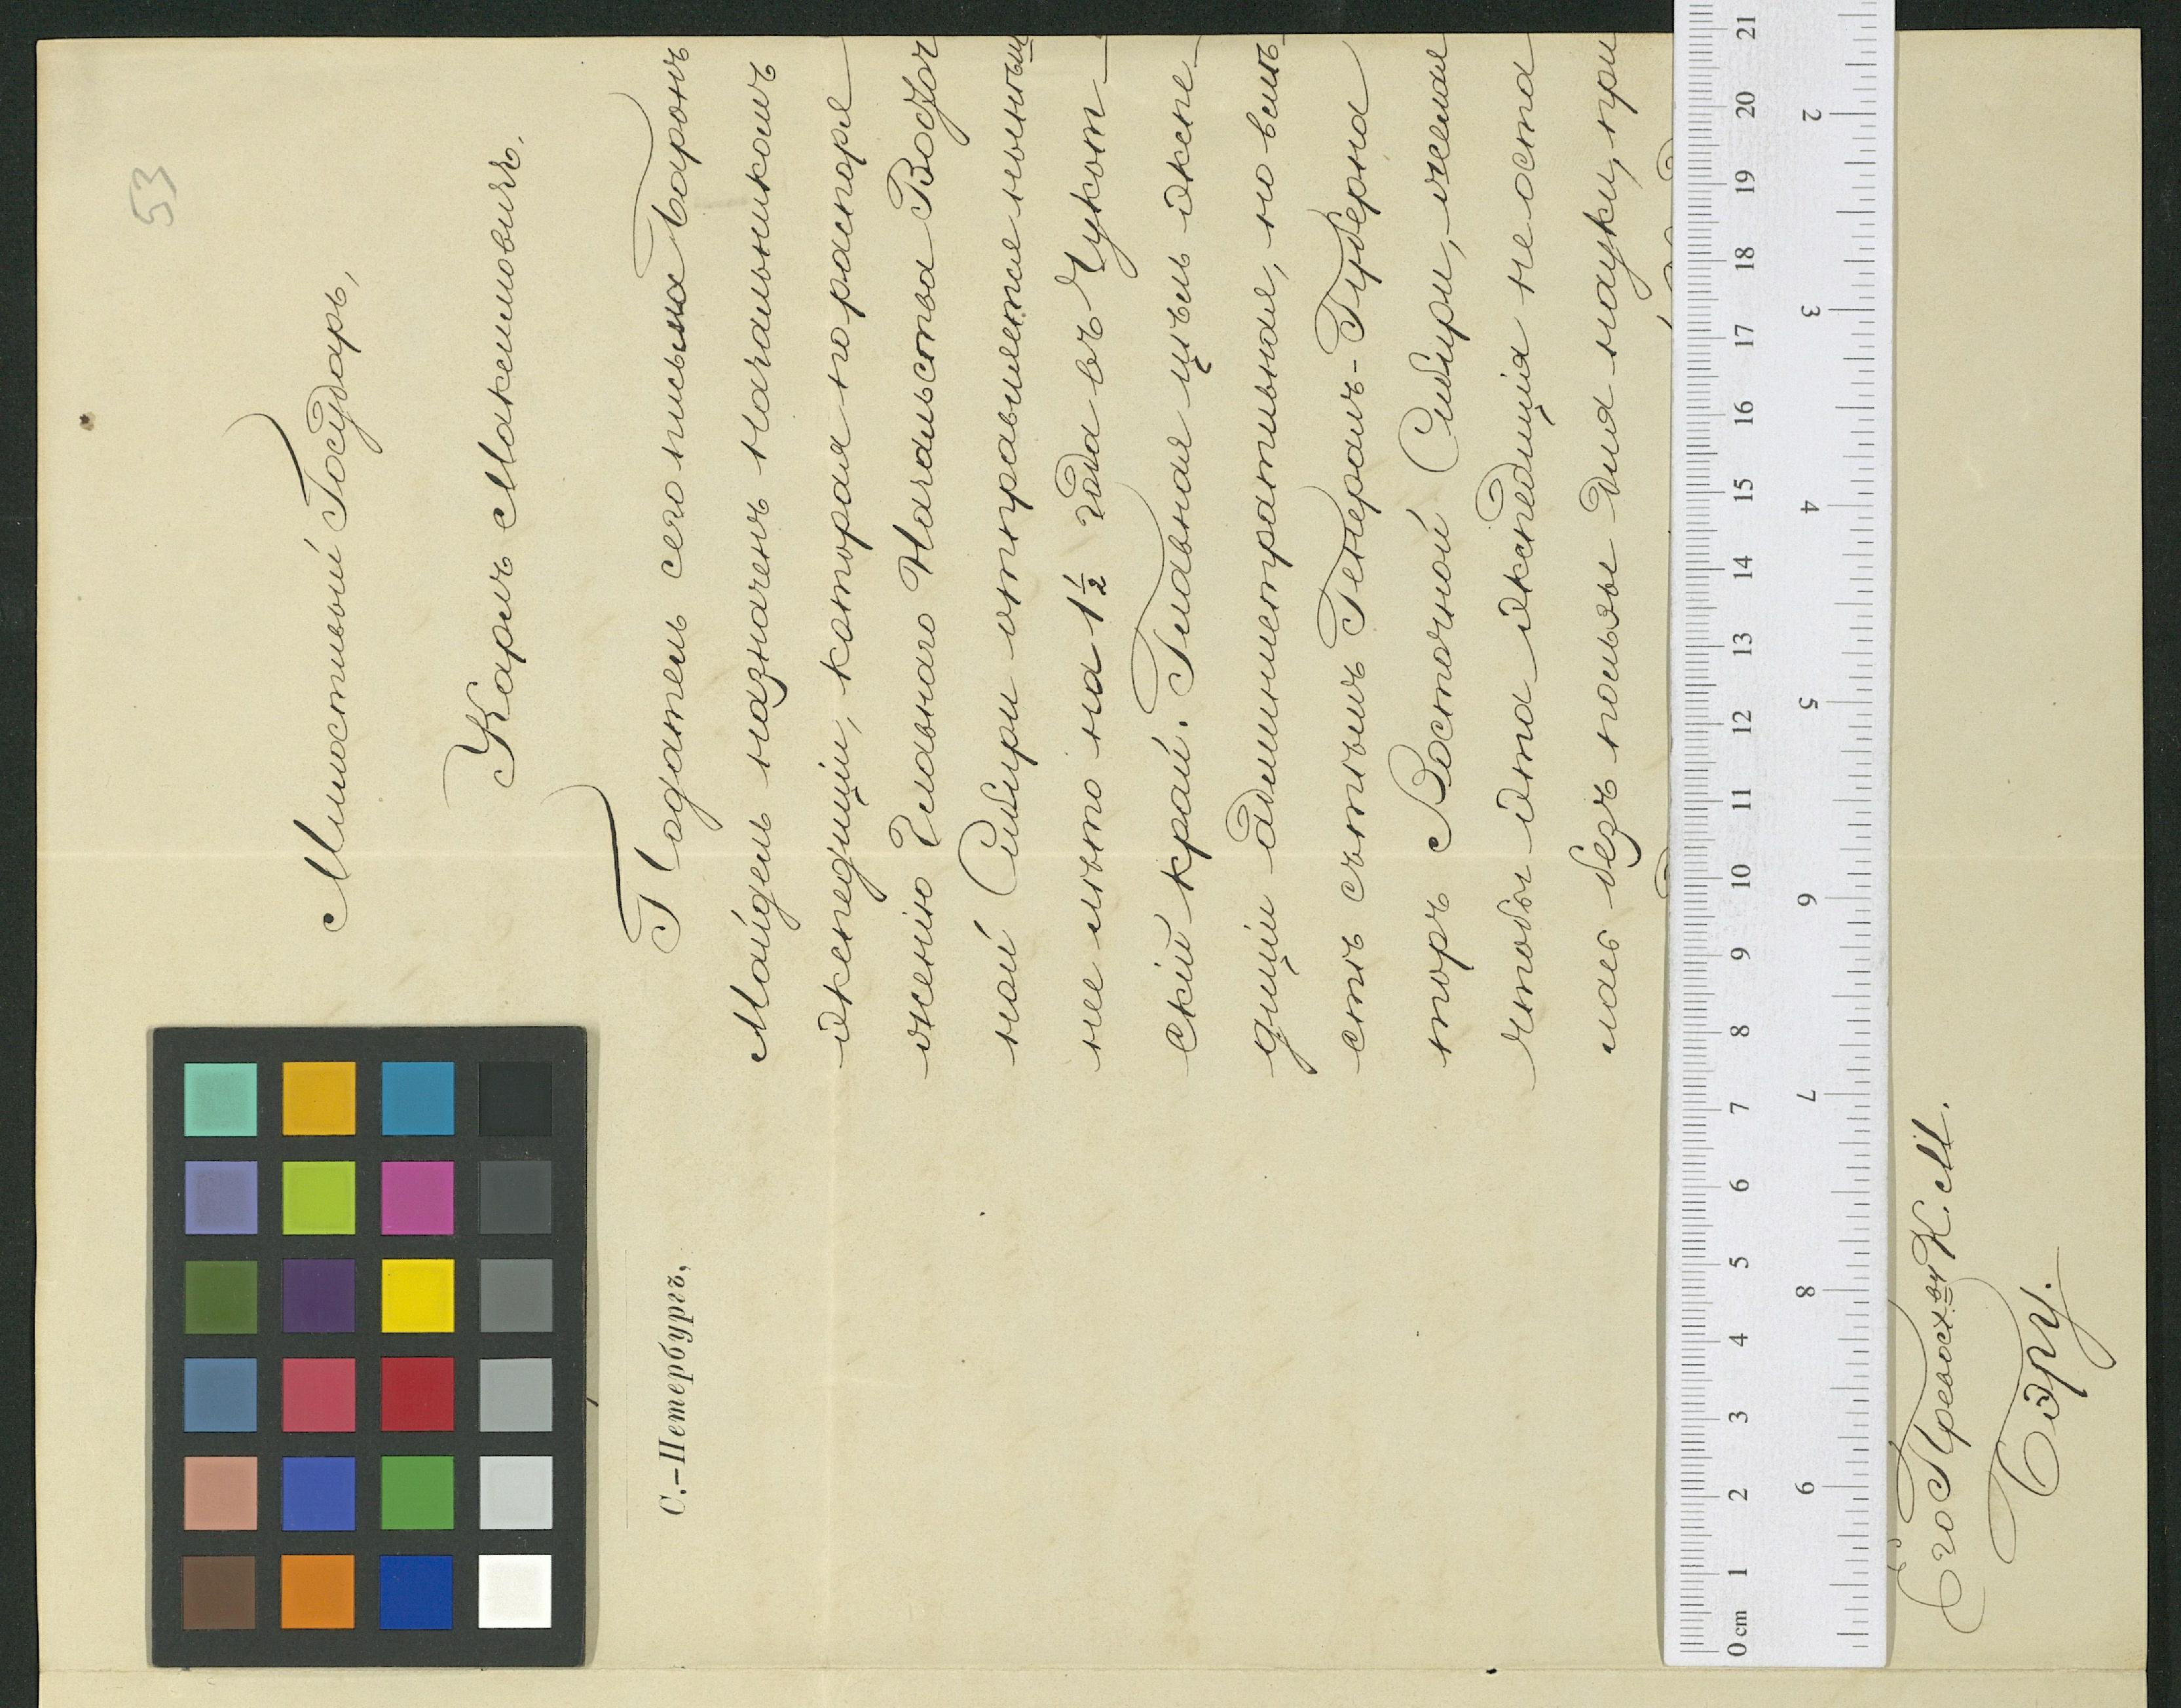 53
Милостивый Государь,
Карлъ Максимовичъ.
Податель сего письма Баронъ
Майдель назначенъ начальникомъ
экспедиціи, которая по распоря
женію Главнаго Начальства Восточ
ной Сибири отправляется нынѣш
нее лѣто на 1½ года въ Чукот-
скій край. Главная цѣль экспе-
диціи административная, но вмѣ-
стѣ съ тѣмъ Генералъ-Губерна
торъ Восточной Сибири, желая
чтобы эта экспедиція не оста
лась безъ пользы для науки, при
С.-Петербургъ,
Его Превосх-ву К. М.
Бэру.
0 cm 1 2 3 4 5 6 7 8 9 10 11 12 13 14 15 16 17 18 19 20 21
2 3 4 5 6 7 8 9